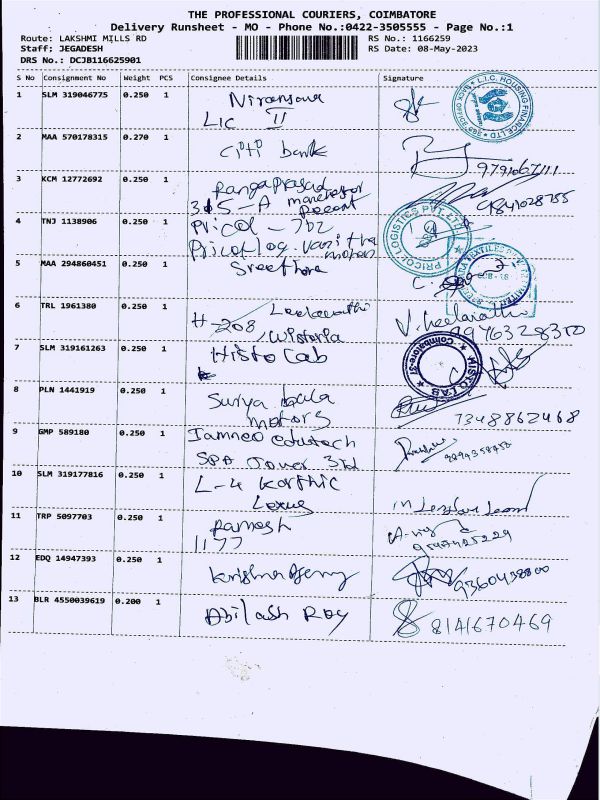 THE PROFESSIONAL COURIERS, COIMBATORE
Delivery Runsheet - MO - Phone No.:0422-3505555 - Page No.:1
Route: LAKSHMI MILLS RD RS No.: 1166259
Staff: JEGADESH RS Date: 08-May-2023
DRS No.: DCJB116625901
S No Consignment No Weight PCS Consignee Details Signature
1 SLM 319046775 0.250 1
LIC II
L.I.C. HOUSING FINANCE LTD
BACK OFFICE
2 MAA 570178315 0.270 1 Citi bank
9791067111
3 KCM 12772692 0.250 1 Rangaprasad
305-A manchester
Regent
9841028755
4 TNJ 1138906 0.250 1 Pricol - 702
Pricol log
PRICOL LOGISTICS PVT LTD
5 MAA 294860451 0.250 1
6 TRL 1961380 0.250 1 Leelavathi
H-208, Wistoria
V. Leelavathi
9976328350
7 SLM 319161263 0.250 1 Histo Lab
HISTO LAB
Coimbatore-37
8 PLN 1441919 0.250 1 Surya bala
motors
7348862468
9 GMP 589180 0.250 1 Iamneo edutech
SPA Tower 3rd
10 SLM 319177816 0.250 1 L-4 Karthic
Lexus
11 TRP 5097703 0.250 1 Ramesh
1177
12 EDQ 14947393 0.250 1
9360438800
13 BLR 4550039619 0.200 1 Abilash Roy
8141670469